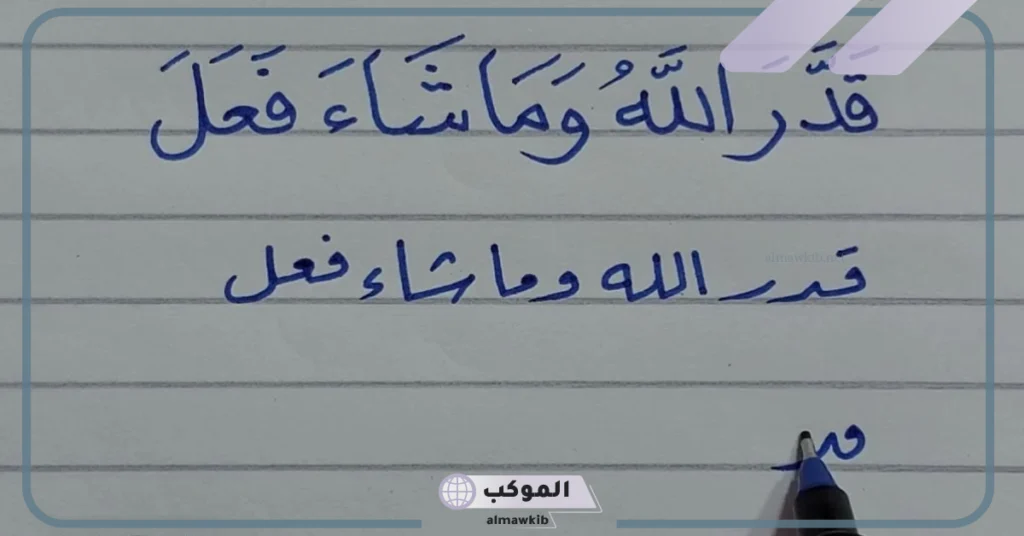 قَدَّرَ اللَّهُ وَمَا شَاءَ فَعَلَ
قدر الله وما شاء فعل
almawkib.net
قد
الموكب
almawkib